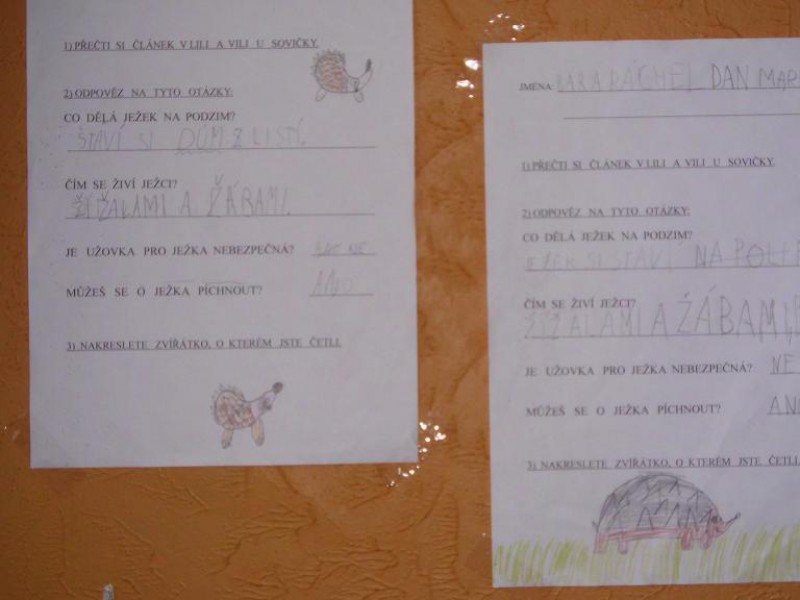 1) PŘEČTI SI ČLÁNEK V LILI A VILI U SOVIČKY.
2) ODPOVĚZ NA TYTO OTÁZKY:
CO DĚLÁ JEŽEK NA PODZIM?
STAVÍ SI DŮM Z LISTÍ.
ČÍM SE ŽIVÍ JEŽCI?
ŽÍŽALAMI A ŽÁBAMI.
JE UŽOVKA PRO JEŽKA NEBEZPEČNÁ? NE
MŮŽEŠ SE O JEŽKA PÍCHNOUT? ANO
3) NAKRESLETE ZVÍŘÁTKO, O KTERÉM JSTE ČETLI.
JMÉNA: RÁCHEL DAN
1) PŘEČTI SI ČLÁNEK V LILI A VILI U SOVIČKY.
2) ODPOVĚZ NA TYTO OTÁZKY:
CO DĚLÁ JEŽEK NA PODZIM?
SI STAVÍ NA
ČÍM SE ŽIVÍ JEŽCI?
ŽÍŽALAMI A ŽÁBAMI
JE UŽOVKA PRO JEŽKA NEBEZPEČNÁ? NE
MŮŽEŠ SE O JEŽKA PÍCHNOUT? AN
3) NAKRESLETE ZVÍŘÁTKO, O KTERÉM JSTE ČETLI.